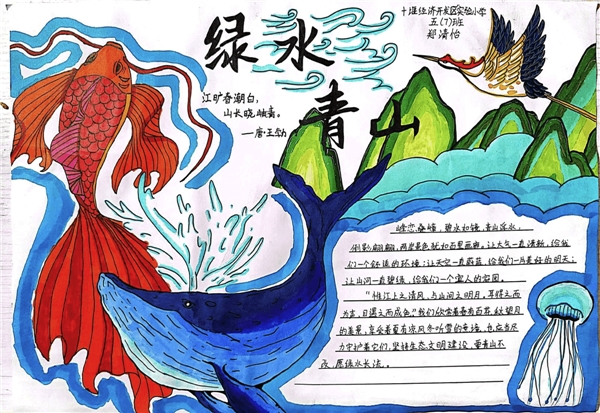 绿水
青山
十堰经济开发区实验小学
五(7)班
郑清怡
江旷春潮白,
山长晓岫青。
——唐·王勃
峰峦叠嶂,碧水如镜,青山浮水,
倒影翩翩,两岸景色犹如百里画廊。让大气一直清新,给我
们一个舒适的环境;让天空一直蔚蓝,给我们一片美好的明天;
让山河一直碧绿,给我们一个宜人的家园。
"惟江上之清风,与山间之明月,耳得之而
为声,目遇之而成色"我们欣赏着春有百花秋望月
的美景,享受着夏有凉风冬听雪的意境,也应当尽
力守护着它们,坚持生态文明建设,要青山不
改,愿绿水长流。